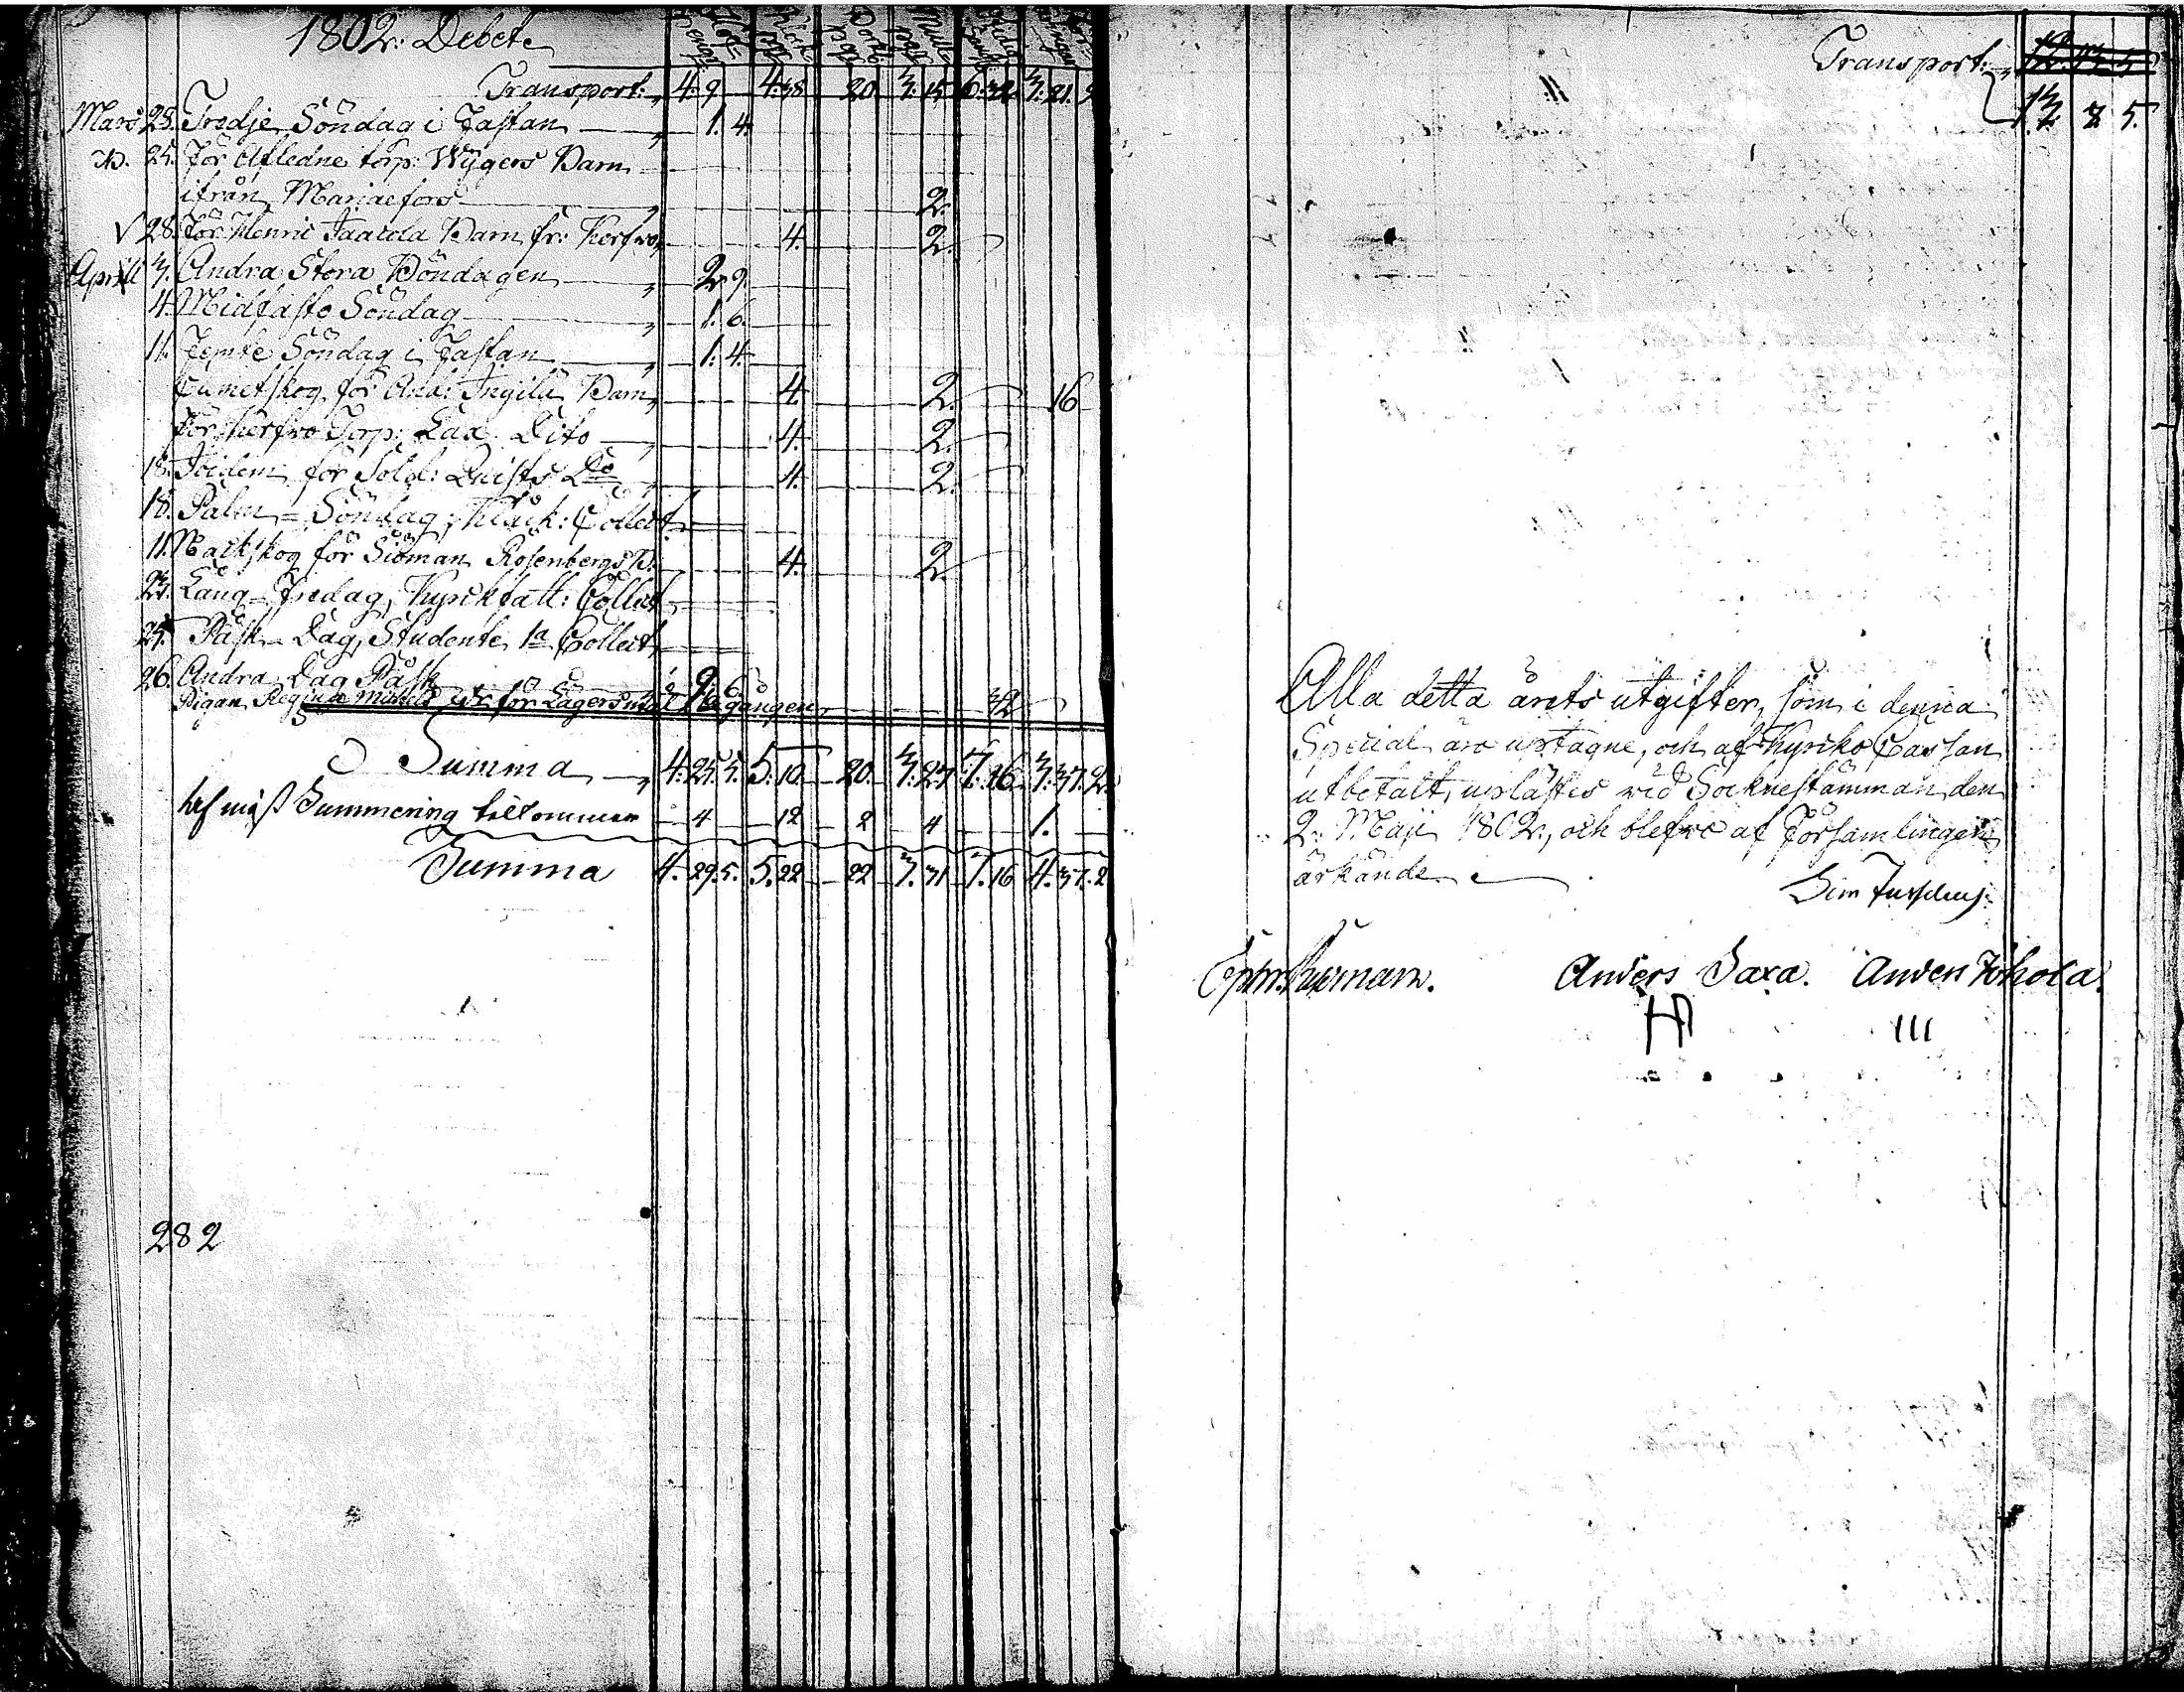 1802. Debet
Transport: 4. 9 4:38 20. 3. 15 6:32. 3. 21. 9
Mars 28. Tredje Söndag i Fastan 1. 4.
25. För Afledne torp: Wÿgers Barn
ifrån Mariaefors 2.
28. För Henric Barn fr: Kerfvo 4. 2.
Aprill 3. Andra Stora Böndagen 2. 9.
4. Midfasto Söndag 1. 6.
11. Femte Söndag i Fastan 1. 4.
för And: Ingilä Barn 4. 2. 16
För Kerfvo Torp: Lax Dito 4. 2.
18. Ibidem för Sold: Quists Do 4. 2.
18. Palm-Söndag, Collect
11. Backskog för Siöman Rosenbergs B. 4. 2.
23. Lång-Fredag, Kyrckfatt: Collect
25. Påsk-Dag, Studente 1a Collect
26. Andra Dag Påsk 2. 6.
Pigan Regina för gången 32
Summa 4. 25. 5. 5. 10 20. 3. 27 7. 16. 3. 37. 2
Summering tillkommer 4 12 2 4 1.
Summa 4. 29. 5. 5. 22 22 3. 31 7. 16 4. 37. 2
282
Transport:
13 2 5.
Alla detta årets utgifter, som i denna
Special äro uptagne, och af Kyrcko Cassan
utbetalt, uplästes vid Socknestämman den
2. Maji 1802, och blefvo af Församlingen
ärkände.
Anders Saxa. Anders
III